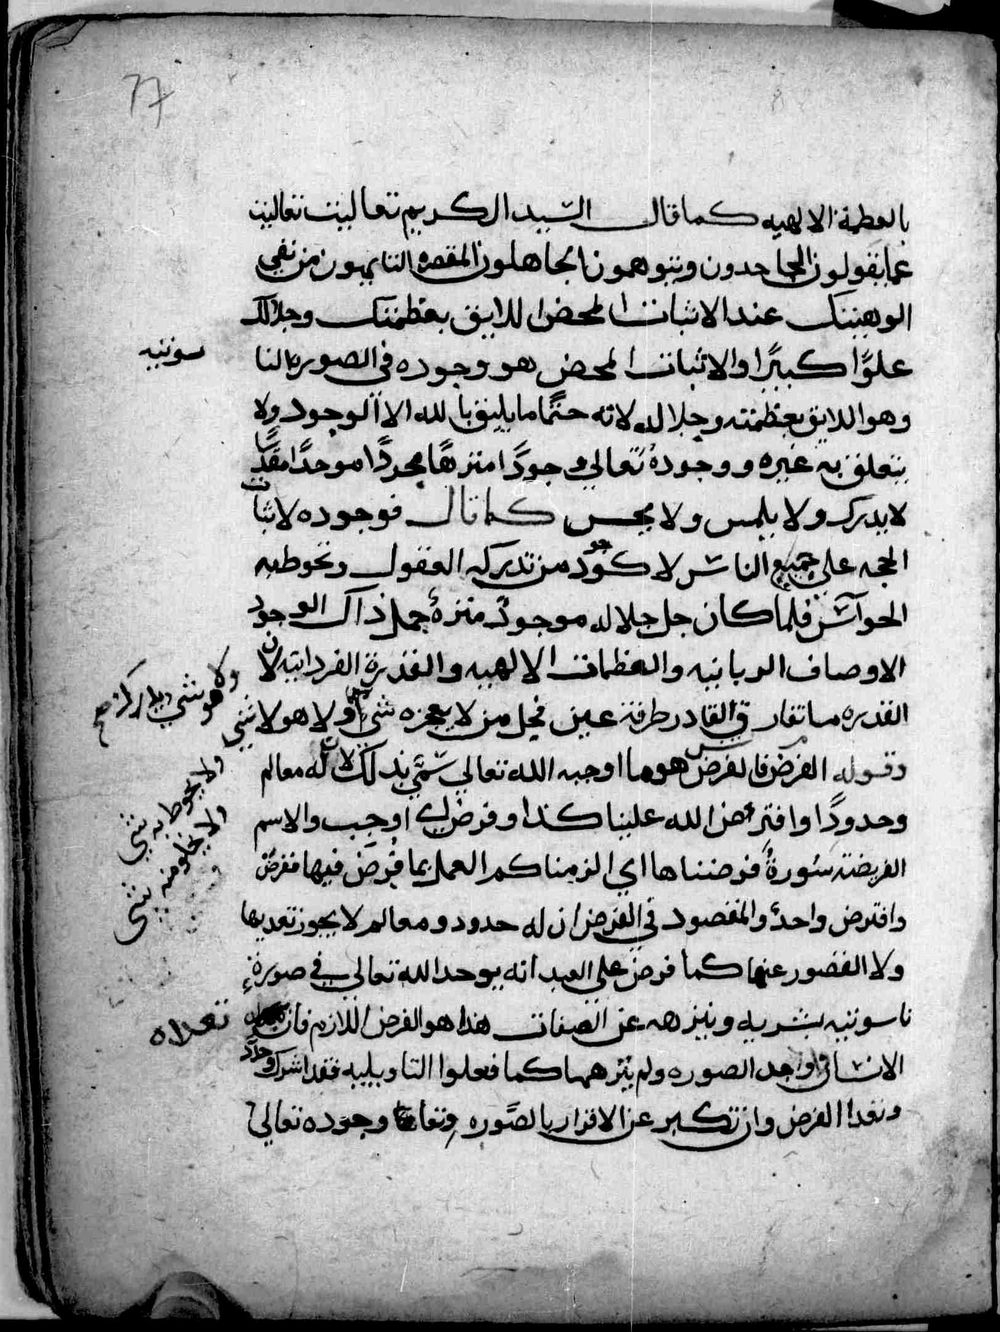 77
بالعظمة الالهيه كما قال السيد الكريم تعاليت تعاليت
عما يقولون الجاحدون ويتوهمون الجاهلون المقصره التايهون من نفي
الوهيتك عند الاثبات المحض اللايق بعظمتك وجلالك
علوًا كبيرًا والاثبات المحض هو وجوده في الصوره النا
سوتيه
وهو اللايق بعظمته وجلاله لانه حتمًا ما يليق بالله الا الوجود ولا
يتعلق به غيره ووجوده تعالي وجودًا منزهًا مجردًا موحدًا مقدسًا
لا يدرك ولا يلمس ولا يحس كما قال فوجوده لاثبات
الحجه علي جميع الناس لا كوجود من تدركه العقول وتحوطه
الحواس فلما كان جل جلاله موجود منزه جمل ذاك الوجود
الاوصاف الربانيه والعظمات الالهيه والقدرة الفردانيه لان
القدره ما تفارق القادر طرفة عين فجل من لا يعجزه شي ولا هو لا شي
ولا هو شي يدرك صح
ولا يحوط به شي
ولا يخلو منه شي
وقوله الفرض فالفرض هو ما اوجبه الله تعالي سمي بذلك لان له معالم
وحدودًا وافترض الله علينا كذا وفرض اي اوجب والاسم
الفريضة سُورةٌ فرضناها اي الزمناكم العمل بما فُرض فيها ففرض
وافترض واحد والمقصود في الفرض ان له حدود ومعالم لا يجوز تعديها
ولا القصور عنها كما فرض علي العبد انه يوحد الله تعالي في صورة
ناسوتيه بشريه وينزهه عن الصفات هذا هو الفرض اللازم فان
تعداه
الانسان واجد الصوره ولم ينزهها كما فعلوا التاويليه فقد اشرك وجد
وتعدا الفرض وان تكبر عن الاقرار بالصَّوره وجوده تعالي